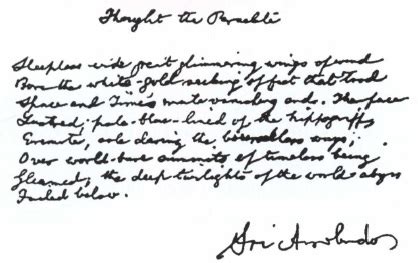 Thought the Paraclete
Sleepless wide great glimmering wings of wind
Bore the white-gold seeking of feet that trod
Space and Time's mute vanishing ends. The face
Lustred, pale-blue-lined of the hippogriff,
Eremite, sole, daring the bourneless ways,
Over world-bare summits of timeless being
Gleamed; the deep twilights of the world abyss
Failed below.
Sri Aurobindo